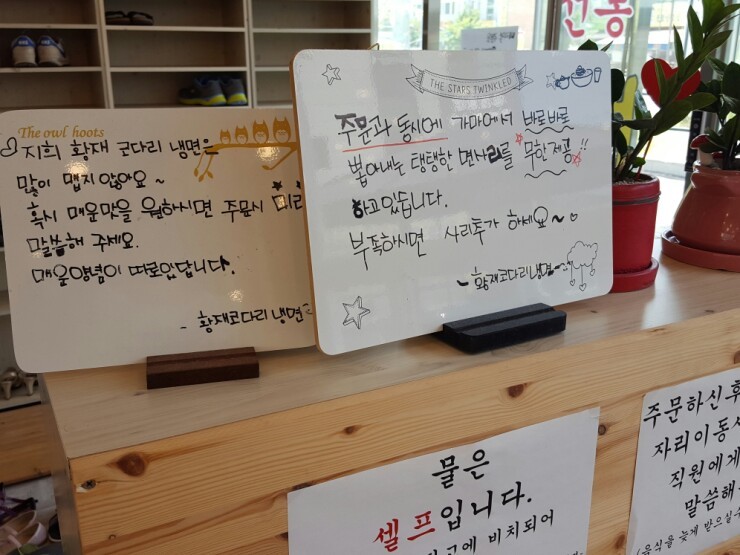 The owl hoots
지희 황재 코다리 냉면은
많이 맵지않아요~
혹시 매운맛을 원하시면 주문시 미리
말씀해 주세요.
매운양념이 따로있답니다.
- 황재코다리냉면
THE STARS TWINKLED
주문과 동시에 가마에서 바로바로
뽑아내는 탱탱한 면사리를 무한제공!!
하고있답니다.
부족하시면 사리추가 하세요~
~황재코다리냉면~
물은
셀프입니다.
비치되어
주문하신후
자리이동시
직원에게
말씀해
(음식을 늦게 받으실수